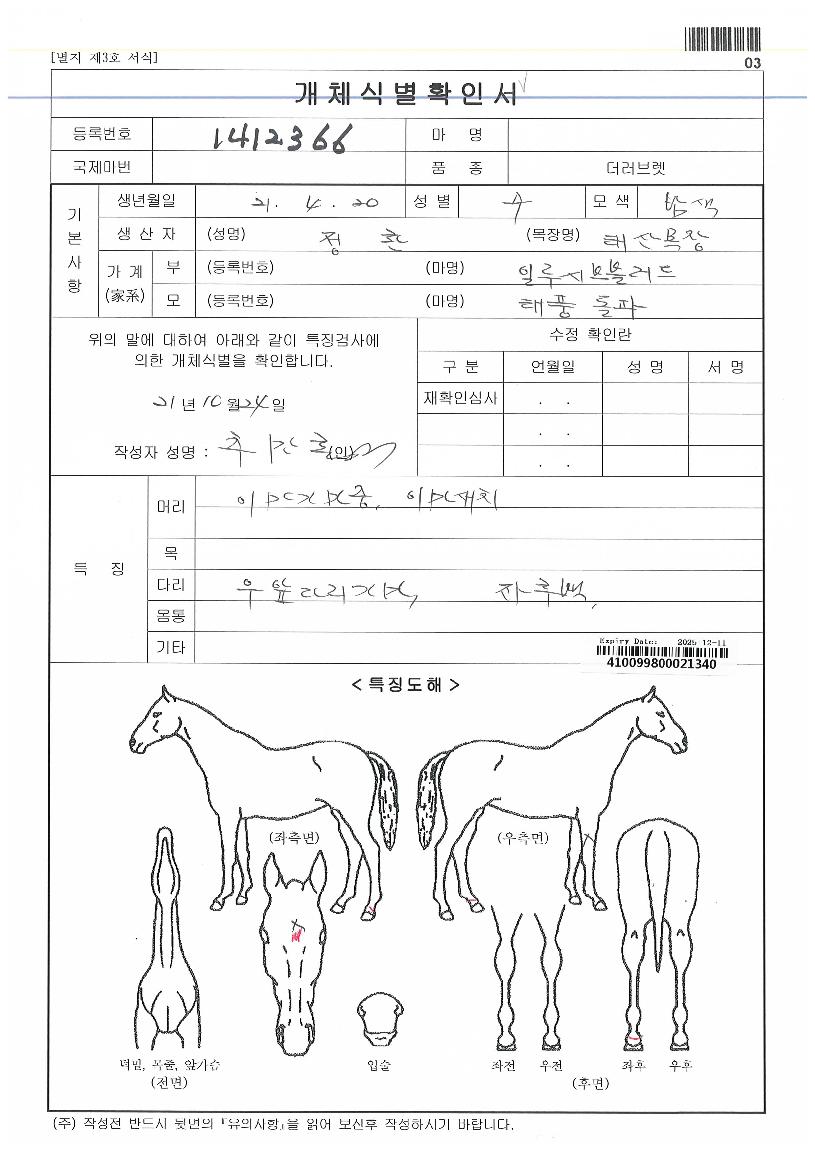 [별지 제3호 서식]
03
개체식별확인서
등록번호 1412366 마 명
국제마번 품 종 더러브렛
기본사항
생년월일 21. 4. 20 성 별 수 모 색 밤색
생 산 자 (성명) 정 훈 (목장명) 태산목장
가 계 (家系) 부 (등록번호) (마명)
모 (등록번호) (마명) 태풍 돌파
위의 말에 대하여 아래와 같이 특징검사에
의한 개체식별을 확인합니다.
21년 10월 24일
작성자 성명 : (인)
수정 확인란
구 분 연월일 성 명 서 명
재확인심사 . .
. .
. .
특 징
머리
목
다리 우앞다리가마, 좌후백,
몸통
기타
Expiry Date: 2025-12-11
410099800021340
< 특징도해 >
(좌측면) (우측면)
녁밑, 목줄, 앞가슴
(전면)
입술
좌전 우전 좌후 우후
(후면)
(주) 작성전 반드시 뒷면의 『유의사항』을 읽어 보신후 작성하시기 바랍니다.